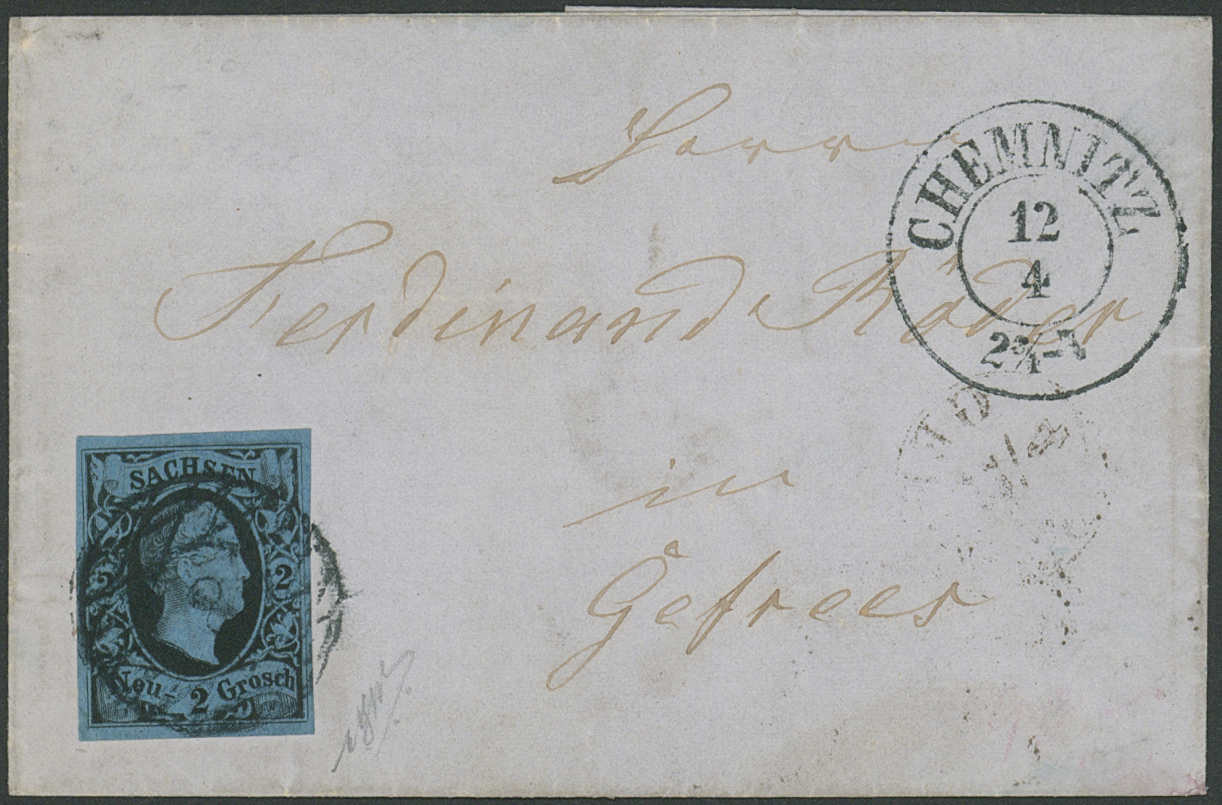 Herrn
Ferdinand Röder
in
Gefrees
CHEMNITZ
12
4
SACHSEN
2
Neu- 2 Grosch